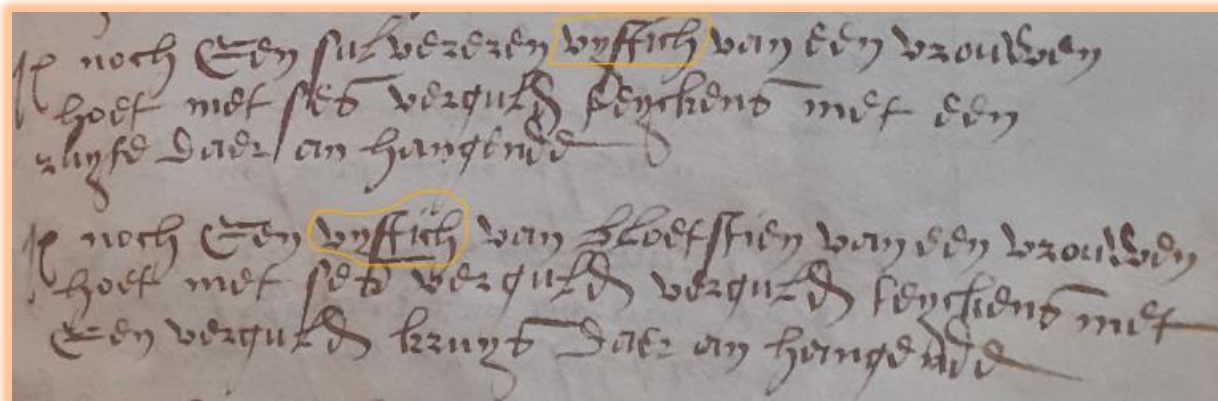 noch Een sulvereren vyftich van een vrouwen
hoet met ses verguld teyckens met een
daer an hangende
noch Een vyftich van bloetstien van een vrouwen
hoet met ses verguld verguld teyckens met
Een verguld kruys daer an hangende